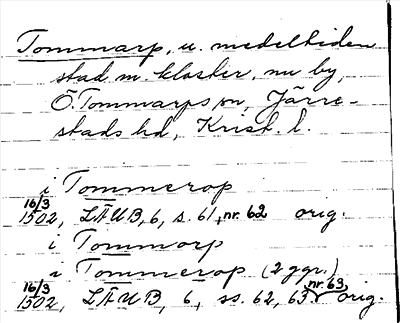 Tommarp, u. medeltiden
stad m. kloster, nu by,
Ö. Tommarps sn, Järre-
stads hd, Krist. l.
i Tommerop
16/3 1502, LÄUB, 6, s. 61, nr. 62 orig.
i Tommorp
i Tommerop (2 ggr.)
16/3 1502, LÄUB, 6, ss. 62, 63, nr. 63, orig.